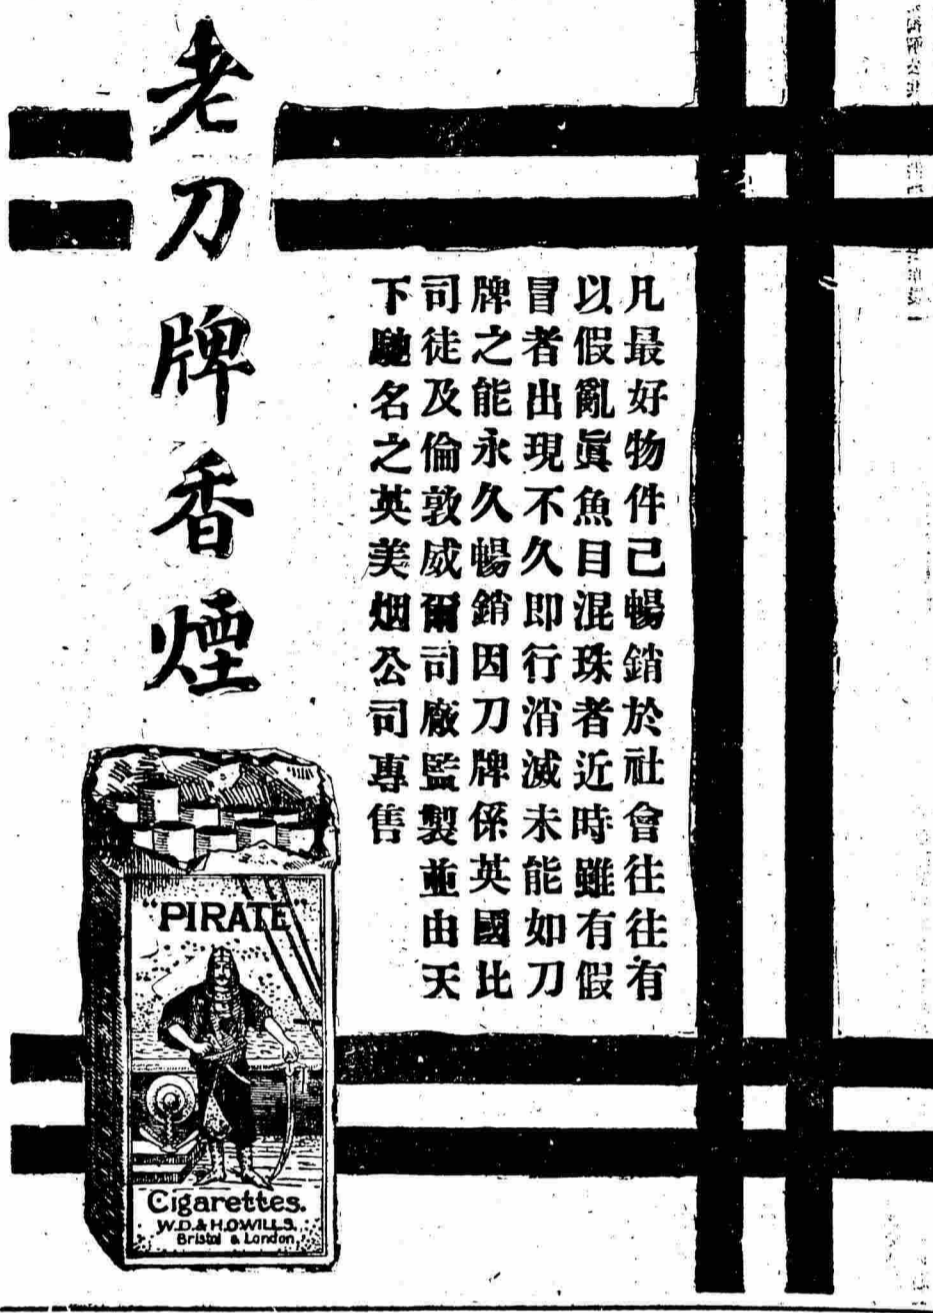 凡最好物件已暢銷於社會往往有
以假亂眞魚目混珠者近時雖有假
冒者出現不久即行消滅未能如刀
牌之能永久暢銷因刀牌係英國比
司徒及倫敦威爾司廠監製並由天
下馳名之英美烟公司專售
老刀牌香煙
"PIRATE"
Cigarettes.
W.D.& H.O.WILLS.
Bristol & London